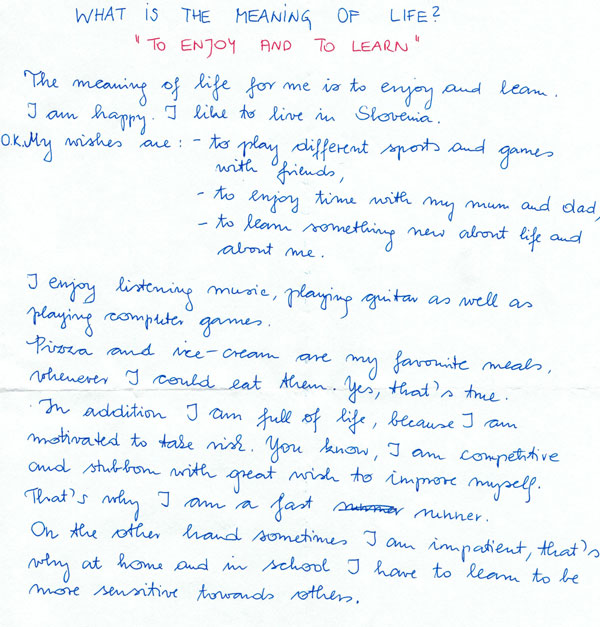 WHAT IS THE MEANING OF LIFE?
"TO ENJOY AND TO LEARN"
The meaning of life for me is to enjoy and learn.
I am happy. I like to live in Slovenia.
O.K. My wishes are: - to play different sports and games
with friends,
- to enjoy time with my mum and dad,
- to learn something new about life and
about me.
I enjoy listening music, playing guitar as well as
playing computer games.
Pizza and ice-cream are my favourite meals,
whenever I could eat them. Yes, that's true.
In addition I am full of life, because I am
motivated to take risk. You know, I am competitive
and stubborn with great wish to improve myself.
That's why I am a fast runner.
On the other hand sometimes I am impatient, that's
why at home and in school I have to learn to be
more sensitive towards others.